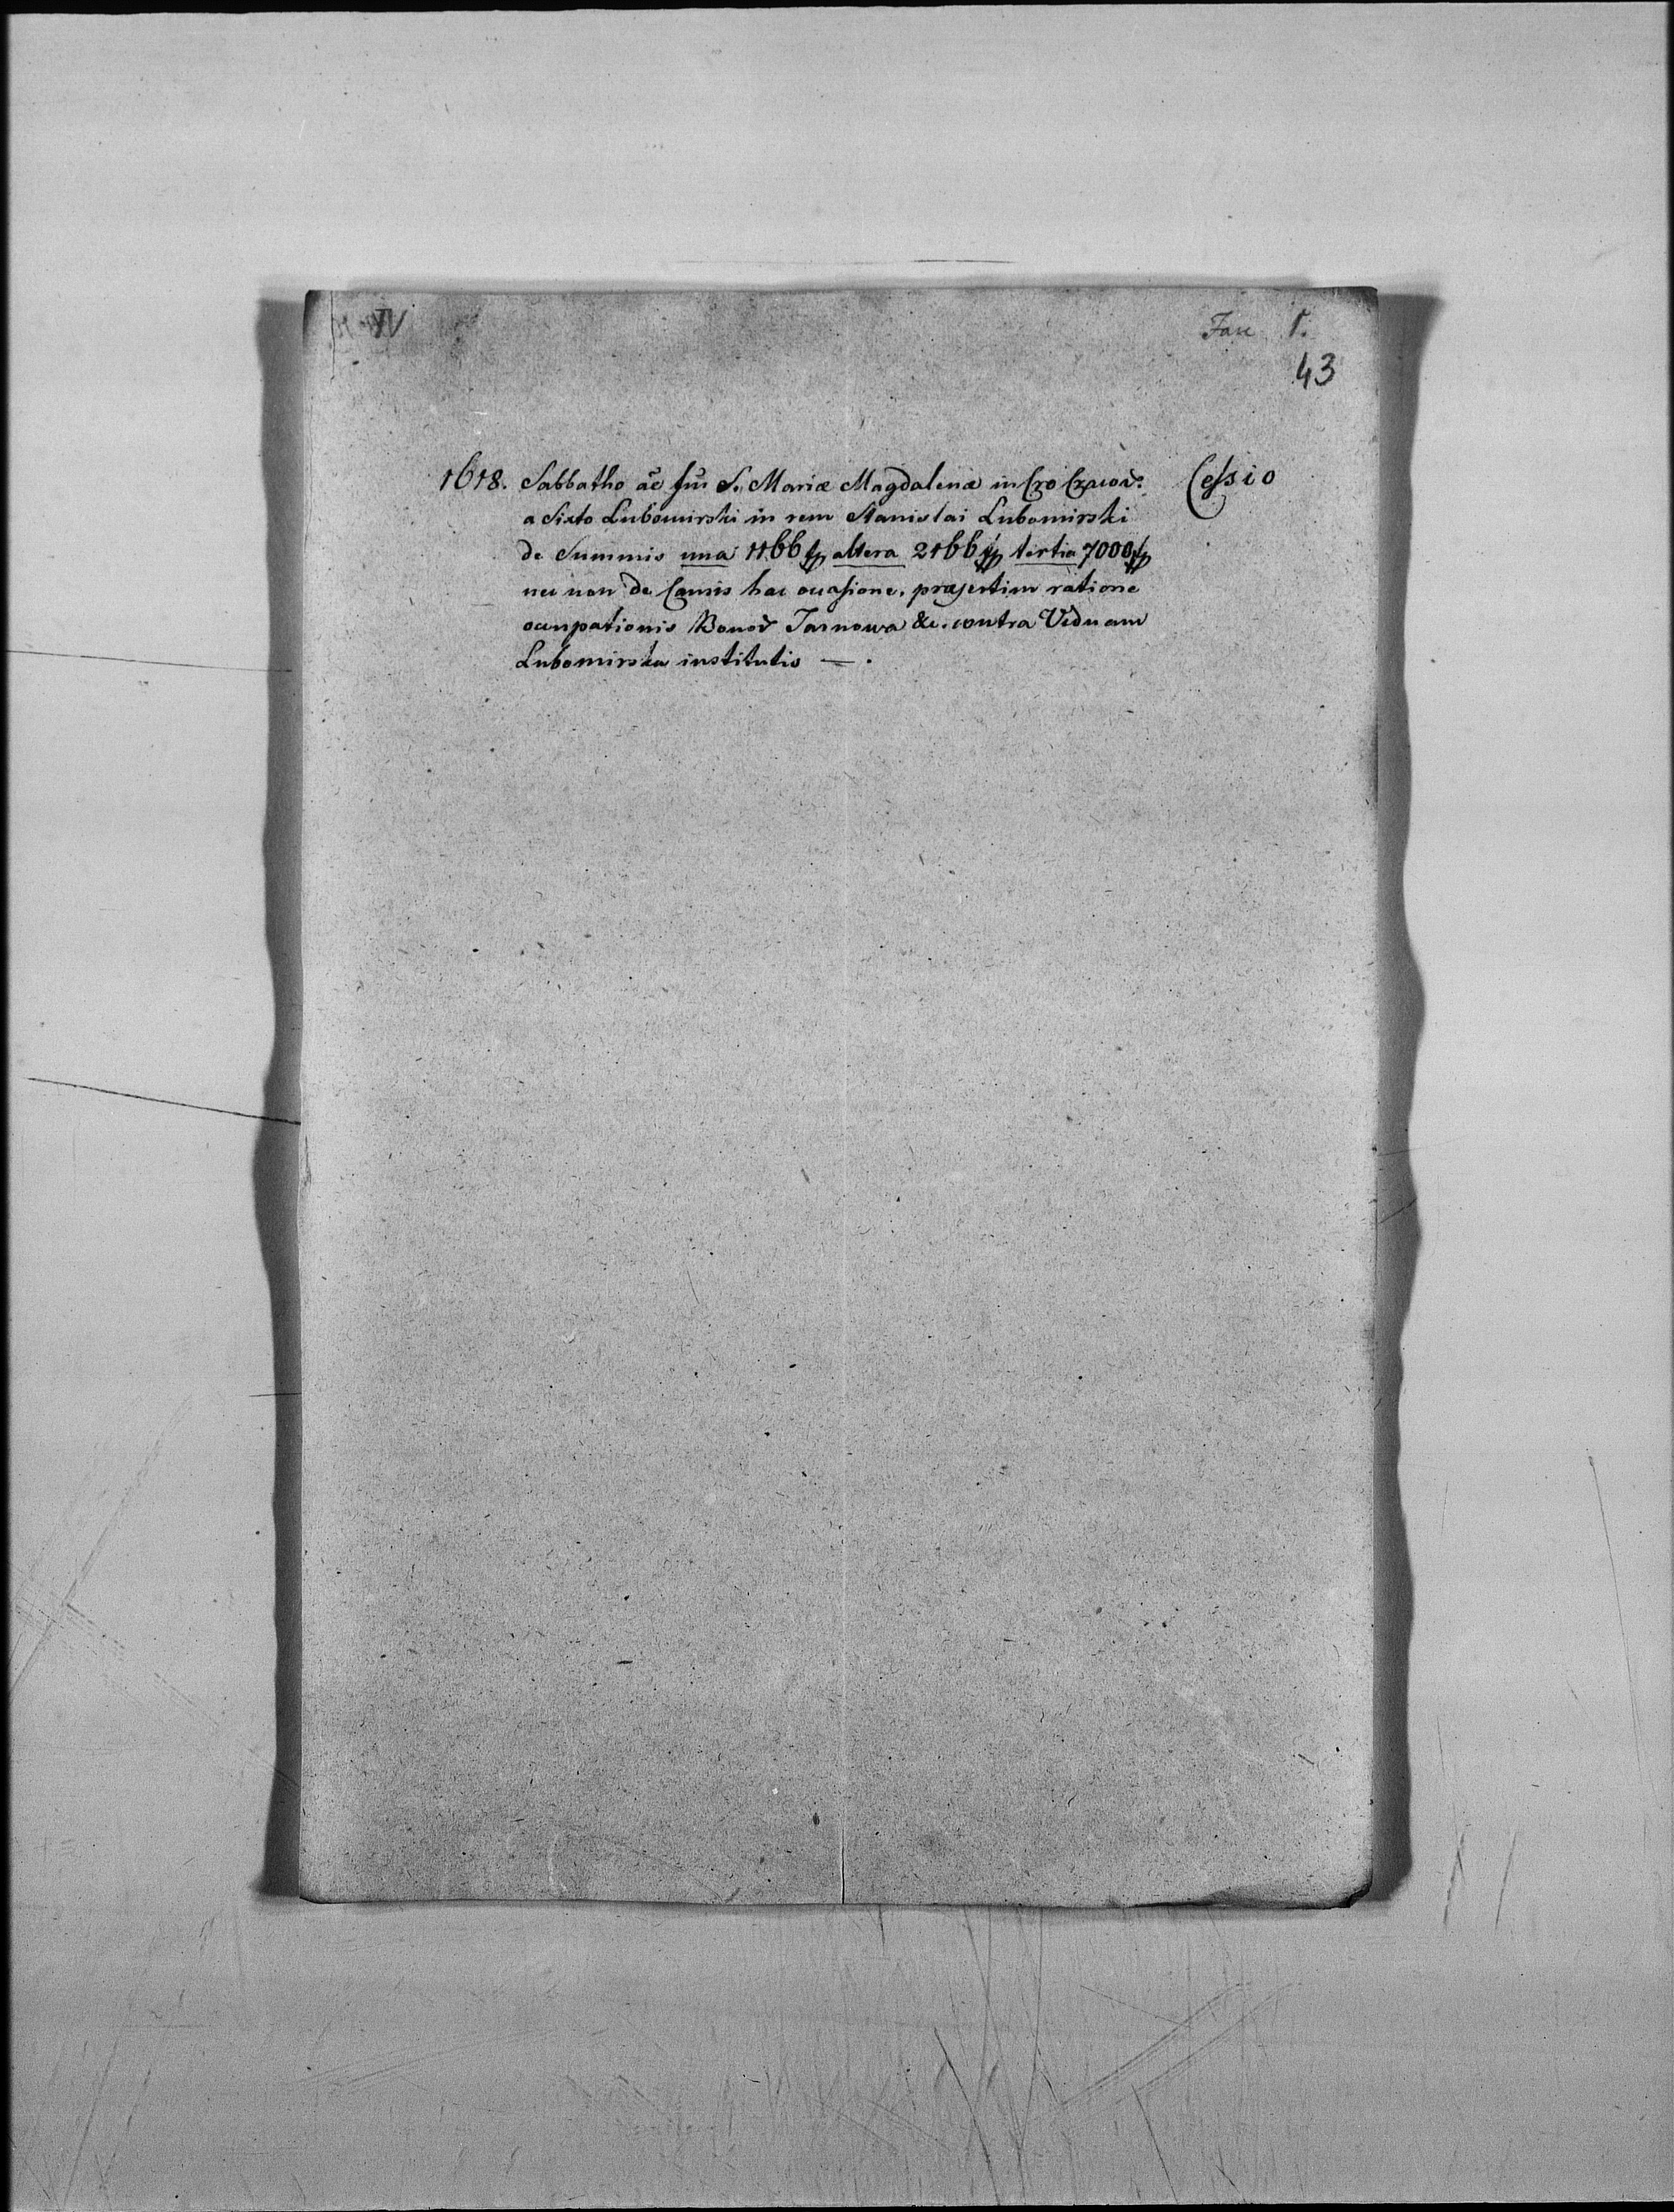 IV
Fasc 1.
43
1618. Sabbatho añ fm̃ S. Mariæ Magdalenæ in Cro Cracov: Cessio
a Sixto Lubomirski in rem Stanislai Lubomirski
de Summis una 1166 altera 2166 tertia 7000
nec non de Causis hac occasione, præsertim ratione
occupationis Bonor Jarnowa &c. contra Viduam
Lubomirska institutis — .